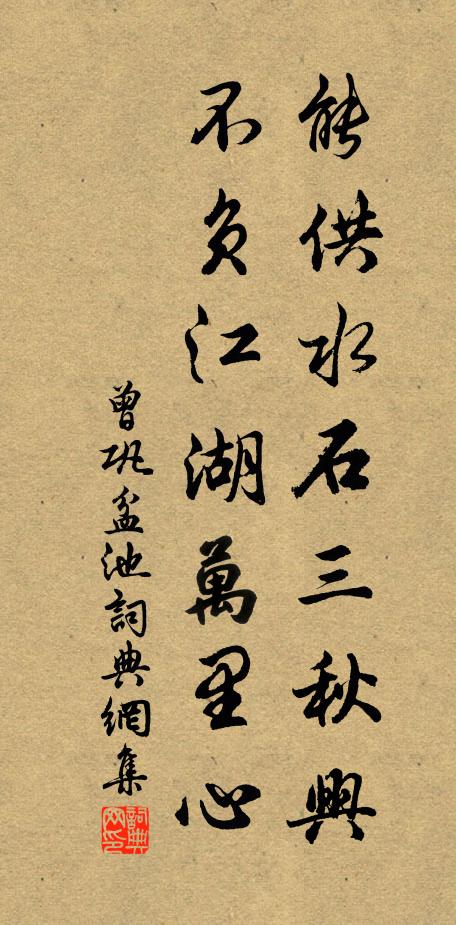 能供水石三秋興
不負江湖萬里心
曾巩盆池詞典網集
詞典网印